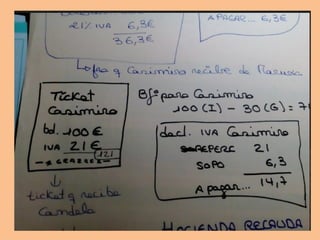 21% IVA 6,3€
36,3€
A PAGAR... 6,3€
↳ fra q Casimiro recibe de
Ticket
Casimiro
bd. 100€
IVA 21€
121
-*GRACIAS*-
↓
ticket q recibe
Candela
Bfº para Casimiro
100 (I) - 30 (G) = 7
decl. IVA Casimiro
REPERC 21
SOPO 6,3
A pagar... 14,7
HACIENDA RECAUDA